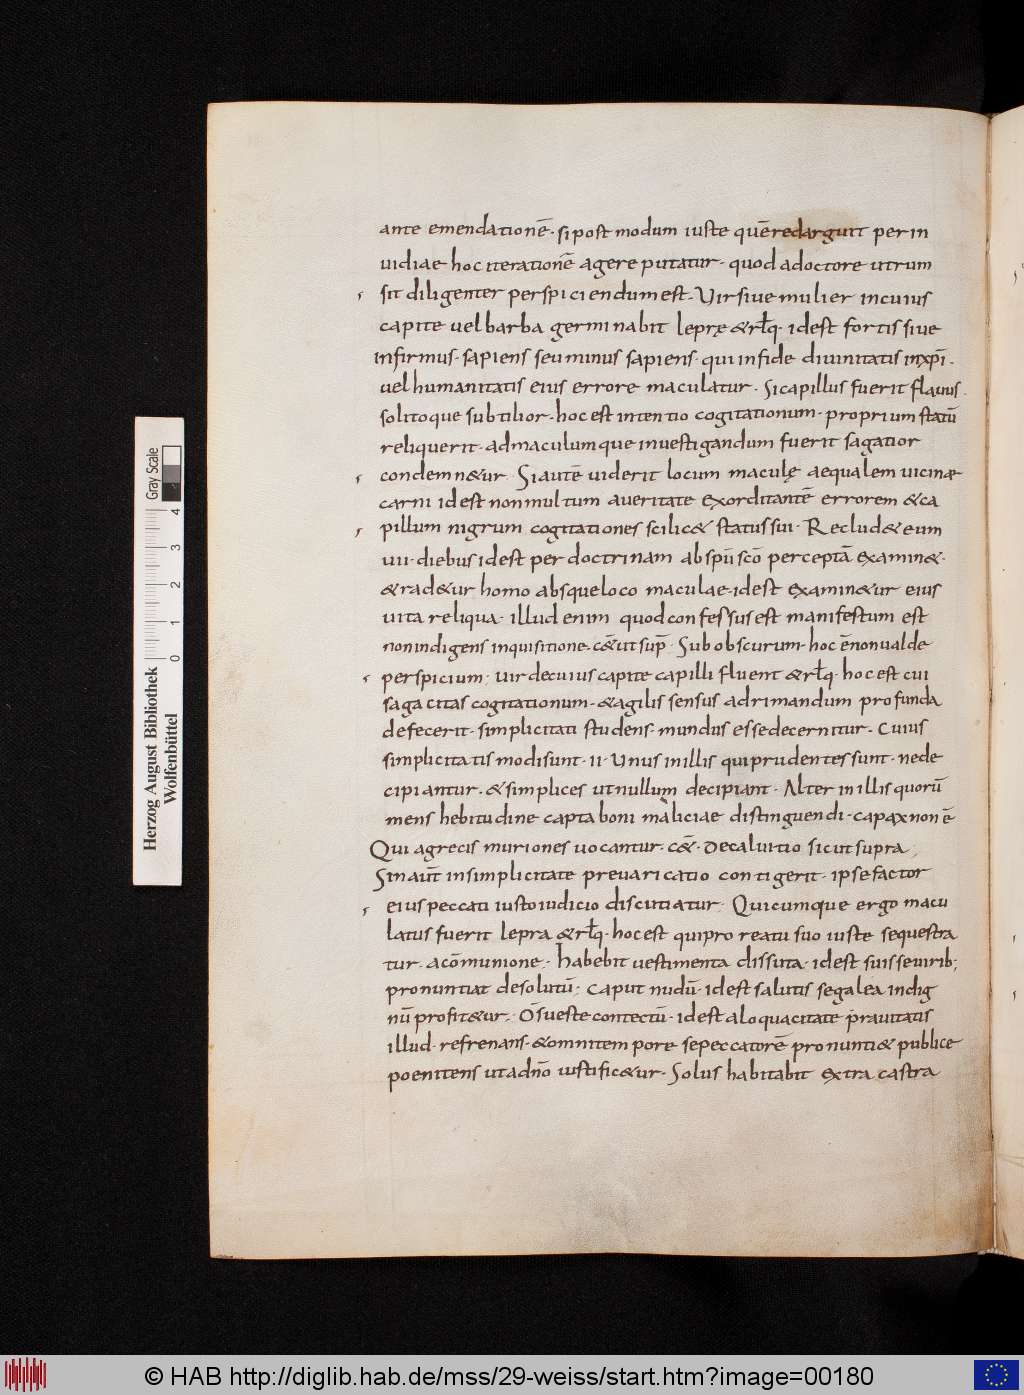 ante emendationē· si post modum iuste quē redarguit per in
uidiae hoc iterationē agere putatur· quod a doctore utrum
sit diligenter perspiciendum est· Vir siue mulier in cuius
capite uel barba germinabit leprę &rłq· id est fortis siue
infirmus· sapiens seu minus sapiens· qui in fide diuinitatis in xp̄i·
uel humanitatis eius errore maculatur· Si capillus fuerit flauus·
solitoque subtilior· hoc est intentio cogitationum· proprium statū
reliquerit· ad maculumque inuestigandum fuerit sagatior
condemn&ur· Si autē uiderit locum maculę aequalem uicinae
carni id est non multum a ueritate exorditantē errorem & ca
pillum nigrum cogitationes scilic& status sui· Reclud& eum
uii· diebus id est per doctrinam ab sp̄u scō perceptā examin&·
& rad&ur homo absque loco maculae· id est examin&ur eius
uita reliqua· illud enim quod confessus est manifestum est
non indigens inquisitione· c&̄ ut sup̄· Subobscurum· hoc ē non ualde
perspicium; uir de cuius capite capilli fluent &rłq· hoc est cui
sagacitas cogitationum· & agilis sensus ad rimandum profunda
defecerit· simplicitati studens· mundus esse decernitur· Cuius
simplicitatis modi sunt· ii· Unus in illis qui prudentes sunt· ne de
cipiantur· & simplices ut nullum decipiant· Alter in illis quorū
mens hebitudine capta boni maliciae distinguendi· capax non ē
Qui a grecis muriones uocantur· c&̄· Decaluitio sicut supra;
Sin aūt in simplicitate preuaricatio contigerit· ipse factor
eius peccati iusto iudicio discutiatur; Quicumque ergo macu
latus fuerit lepra &rłq· hoc est qui pro reatu suo iuste sequestra
tur· a cōmunione; habebit uestimenta dissuta· id est suis se uirib;
pronuntiat desolutū; caput nudū· id est salutis se galea indig
nū profit&ur; Os ueste contectū· id est a loquacitate prauitatis
illud· refrenans· & omni tempore se peccatorē pronunti& publice
poenitens ut a dn̄o iustific&ur· Solus habitabit extra castra
Herzog August Bibliothek
Wolfenbüttel
0 1 2 3 4
Gray Scale
© HAB http://diglib.hab.de/mss/29-weiss/start.htm?image=00180